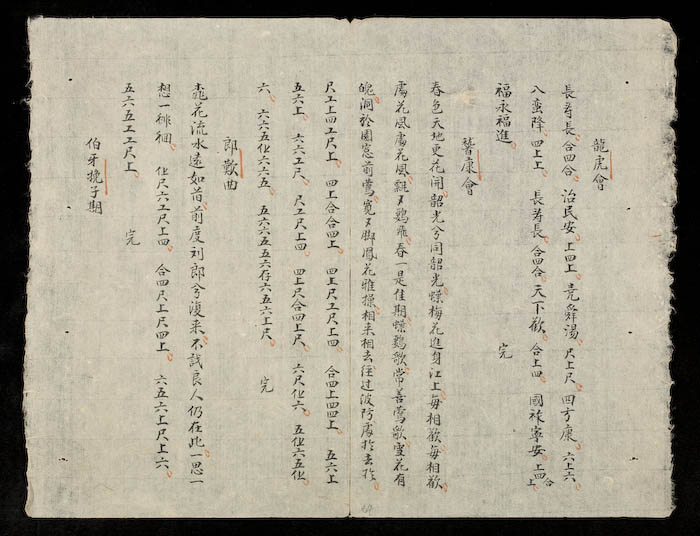 龍虎會
長寿長合四合　治民安上四上　堯舜湯尺上尺　四方康六上六
八蛮降四上上　長寿長合四合　天下歡合上四　國祿寧安上四合上
福永福進　完
嵆康會
春色天地更花開韶光兮同韶光蝶梅花進身江上每相歡每相歡
處花風處花風飄又鶏飛春一是佳期蝶鶏歌常善鶯歌雪花有
魄洞於園窓前鶯寬又脚鳳花雅操相来相去往过波防處於去於
尺工上四工尺上　四上合合四上　四上尺工尺上四　合四上四四上　五六上
五六上　六六工尺　尺工尺上四　四上尺合四上尺　六尺伬六　五伬六五伬
六　六六五伬六六五　五六六五五六伬六五六上尺　完
郎歎曲
桃花流水遠如昔前度刘郎兮復来不識良人仍在此一思一
想一徘徊　伬尺六工尺上四　合四尺上尺四上　六五六上尺上六
五六五工工尺上　完
伯牙挽子期